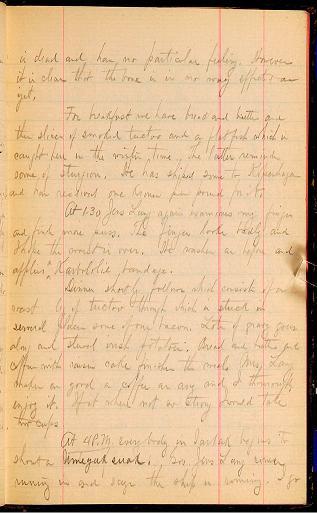 is dead and has no particular feeling. However
it is clear that the bone is in no way effected as
yet.
For breakfast we have bread and butter and
thin slices of smoked tuctoo and a flat fish which is
caught here in the winter time. The latter reminds
some of sturgeon. He has shiped some to Kopenhagen
and has received one kronen per pound for it.
At 1:30 Jens Lang again examines my finger
and finds more puss. The finger looks badly and
I hope the worst is over. He washes an opens and
applies a Karbololic bandage.
Dinner shortly follows which consists of a
roast leg of tuctoo through which is stuck in
several places some of our bacon. Lots of gravy goes
along and stewed irish potatoes. Bread and butter and
coffee with raisen cake finishes the meals. Mrs. Lang
makes as good a coffee as any and I thoroughly
enjoy it. If it where not so strong I would take
two cups.
At 4 P.M. everybody in Sarkak begins to
shout a Umeyuk suah. Jens Lang comes
running in and says the ship is coming. I go